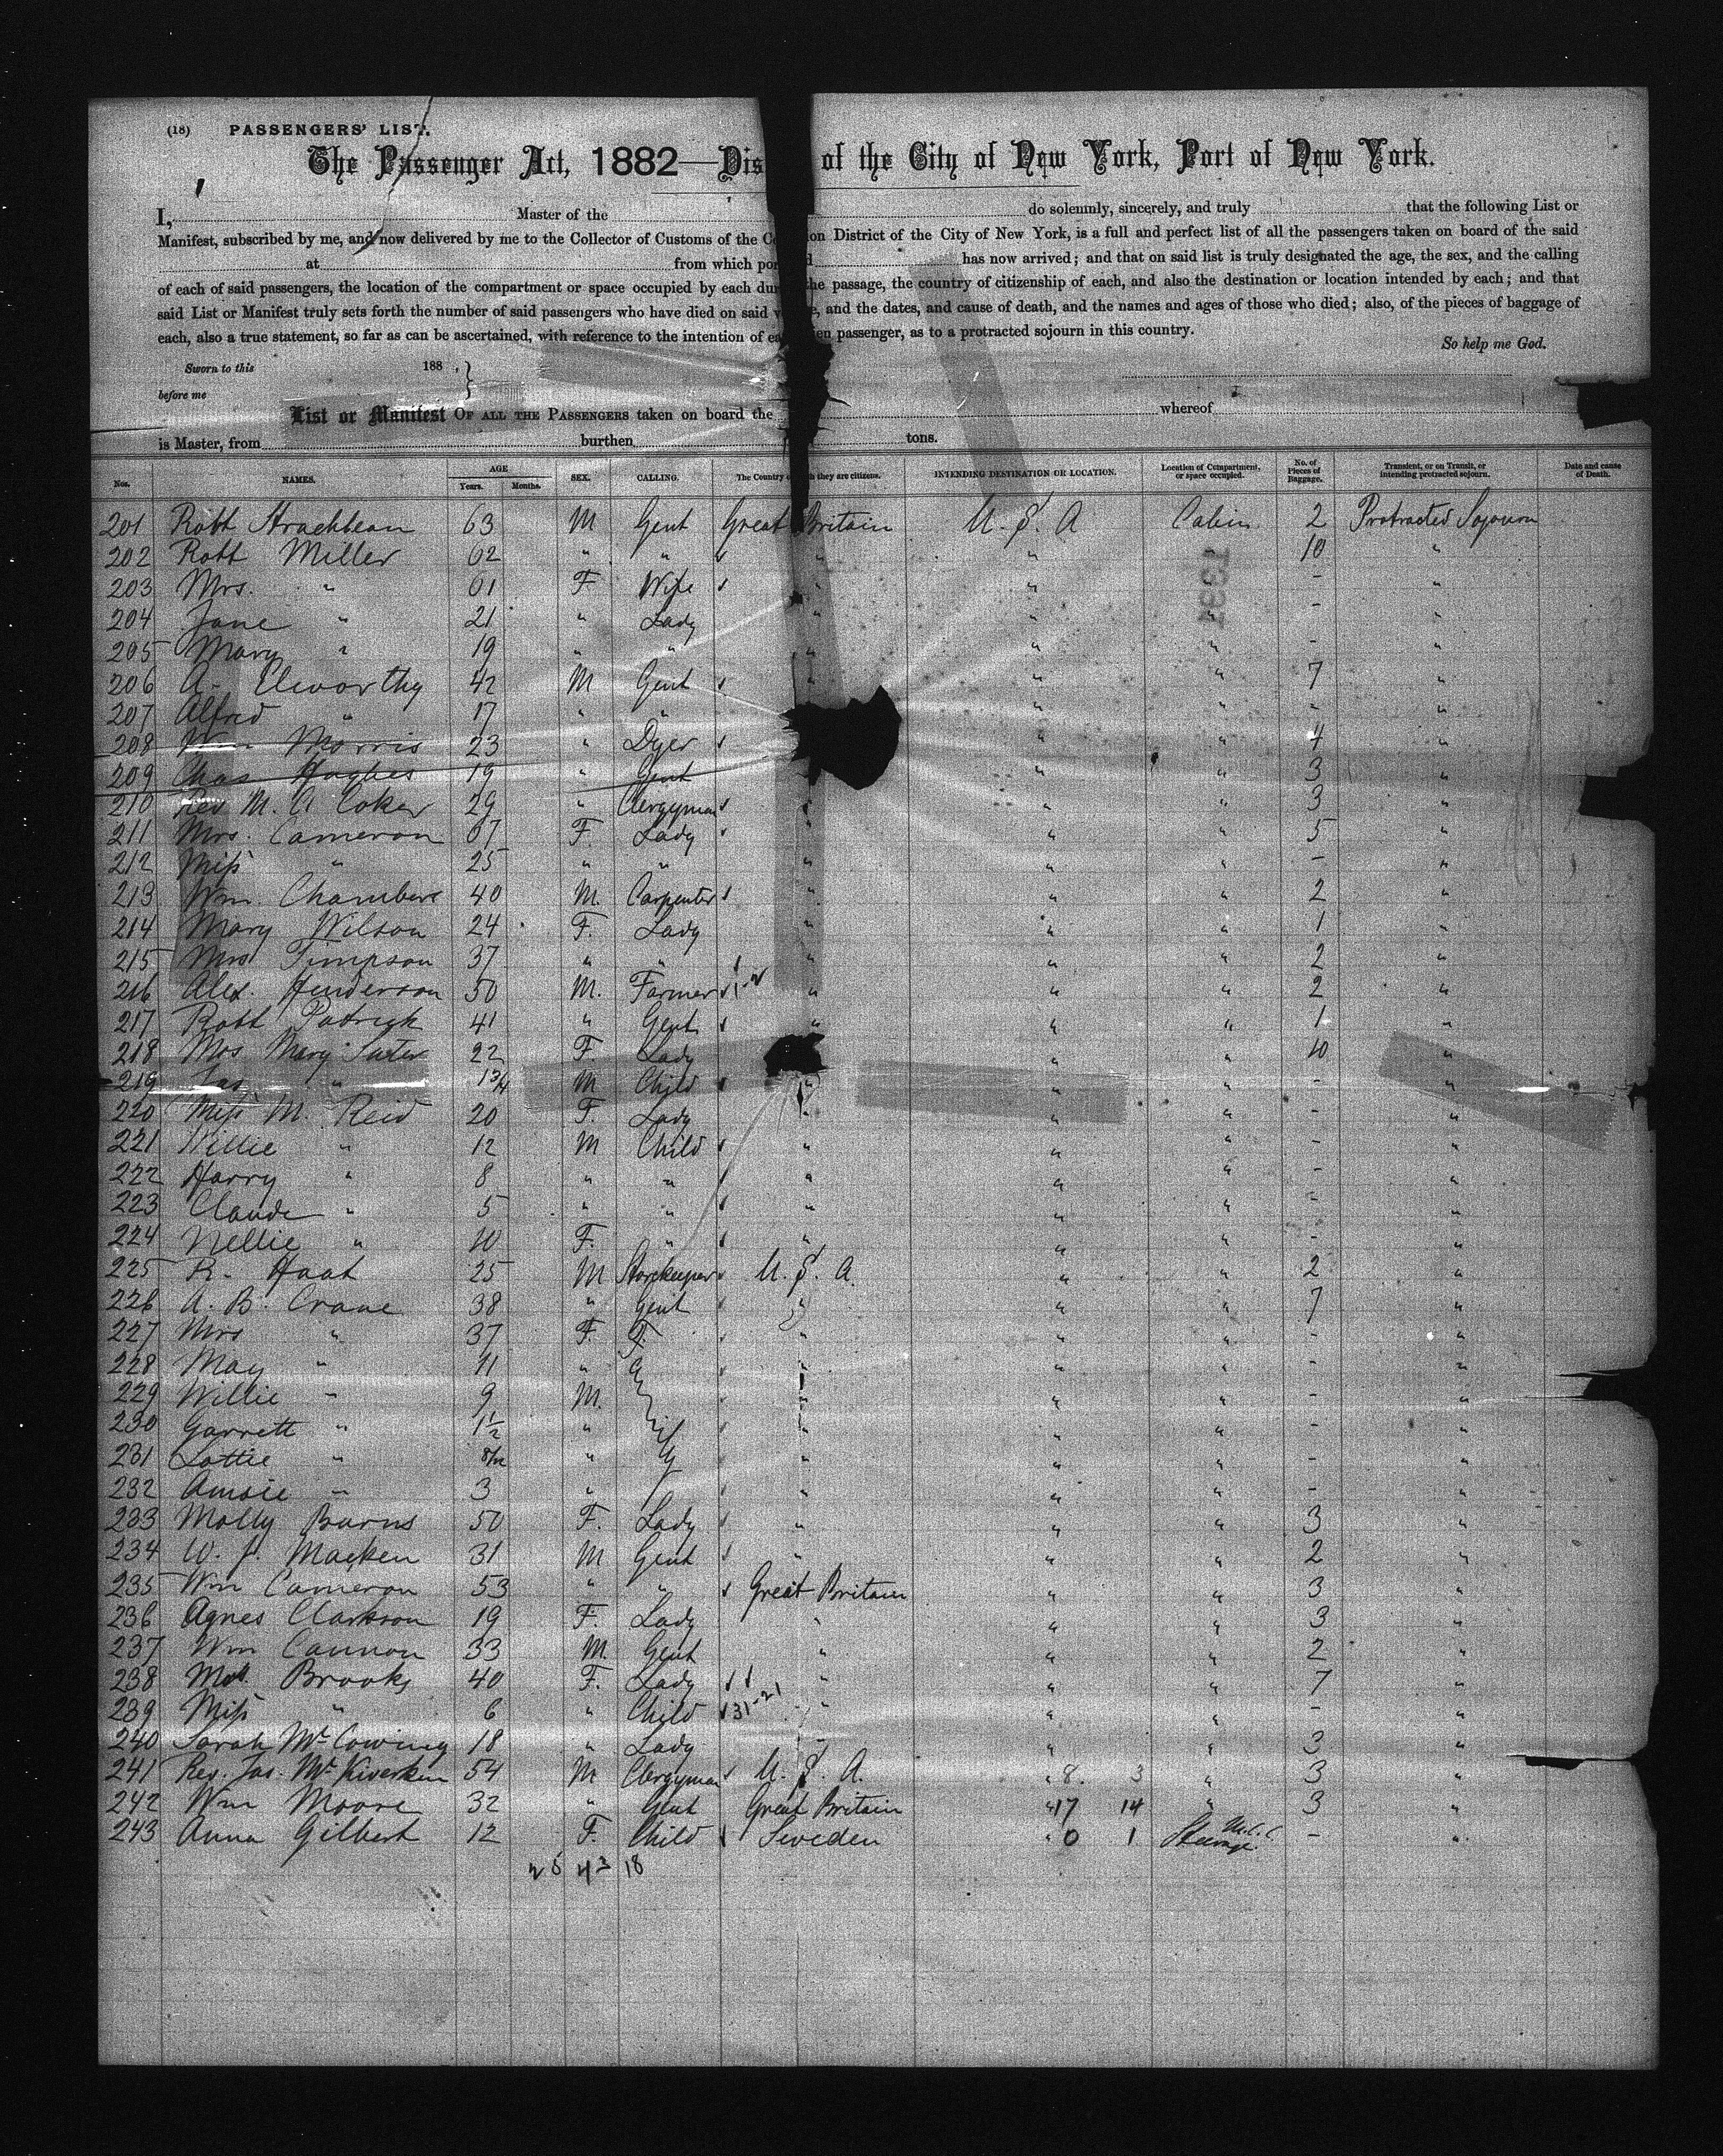 (18) PASSENGERS' LIST.
The Passenger Act, 1882—Dis of the City of New York, Port of New York.
I, Master of the do solemnly, sincerely, and truly that the following List or
Manifest, subscribed by me, and now delivered by me to the Collector of Customs of the Co on District of the City of New York, is a full and perfect list of all the passengers taken on board of the said
at from which por d has now arrived; and that on said list is truly designated the age, the sex, and the calling
of each of said passengers, the location of the compartment or space occupied by each dur the passage, the country of citizenship of each, and also the destination or location intended by each; and that
said List or Manifest truly sets forth the number of said passengers who have died on said v e, and the dates, and cause of death, and the names and ages of those who died; also, of the pieces of baggage of
each, also a true statement, so far as can be ascertained, with reference to the intention of ea en passenger, as to a protracted sojourn in this country.
So help me God.
Sworn to this 188 , }
before me
List or Manifest OF ALL THE PASSENGERS taken on board the whereof
is Master, from burthen tons.
Nos. NAMES. AGE Years. Months. SEX. CALLING. The Country o h they are citizens. INTENDING DESTINATION OR LOCATION. Location of Compartment, or space occupied. No. of Pieces of Baggage. Transient, or on Transit, or intending protracted sojourn. Date and cause of Death.
201 Robt Strachbean 63 M Gent Great Britain U. S. A Cabin 2 Protracted Sojourn
202 Robt Miller 62 " " " " " 10 "
203 Mrs. " 61 F Wife " " " - "
204 Jane " 21 " Lady " " " - "
205 Mary " 19 " " " " " - "
206 A. Elworthy 42 M Gent " " 7 "
207 Alfred " 17 " " " " - "
208 Wm Morris 23 " Dyer " " 4 "
209 Chas Hughes 19 " Gent " " 3 "
210 Rev M. A Coker 29 " Clergyman " " " 3 "
211 Mrs. Cameron 67 F. Lady " " " 5 "
212 Miss " 25 " " " " " - "
213 Wm. Chambers 40 M. Carpenter " " " 2 "
214 Mary Wilson 24 F. Lady " " " 1 "
215 Mrs Timpson 37 " " " " " 2 "
216 Alex. Henderson 50 M. Farmer " " " 2 "
217 Robt Patrick 41 " Gent " " " 1 "
218 Mrs Mary Suter 22 F. Lady " " 10 "
219 Jas " 1 3/4 M Child " " " - "
220 Miss M. Reid 20 F. Lady " " " - "
221 Willie " 12 M Child " " " - "
222 Harry " 8 " " " " " - "
223 Claude " 5 " " " " " - "
224 Nellie " 10 F. " " " " - "
225 R. Haat 25 M Storekeeper U. S. A. " " 2 "
226 A. B. Crane 38 " Gent " " " 7 "
227 Mrs " 37 F. " " " - "
228 May " 11 " " " " - "
229 Willie " 9 M. " " " - "
230 Garrett " 1 1/2 " " " " - "
231 Lottie " 8/12 " " " " - "
232 Amsie " 3 " " " " - "
233 Molly Burns 50 F. Lady " " " 3 "
234 W. J. Macken 31 M Gent " " " 2 "
235 Wm Cameron 53 " " Great Britain " " 3 "
236 Agnes Clarkson 19 F. Lady " " " 3 "
237 Wm Cannon 33 M. Gent " " " 2 "
238 Brooks 40 F. Lady " " " 7 "
239 Miss " 6 " Child 31-21 " " " - "
240 Sarah McCowing 18 " Lady " " " 3 "
241 Rev. Jas. 54 M Clergyman U. S. A. " 8. 3 " 3 "
242 Wm Moore 32 " Gent Great Britain " 17 14 " 3 "
243 Anna Gilbert 12 F. Child Sweden " 0 1 Steerage - "
25 43 18